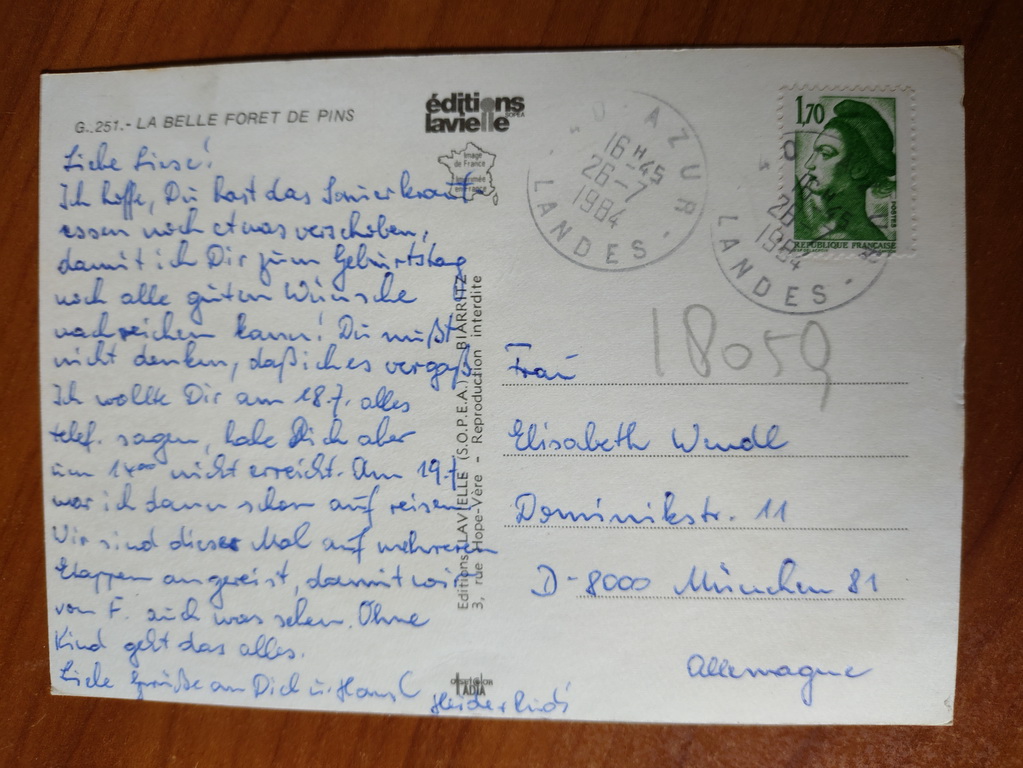 G..251.- LA BELLE FORET DE PINS
éditions
lavielle
SOPEA
Image
de France
Imprimée
en France
Liebe Liese!
Ich hoffe, Du hast das Sauerkraut
essen noch etwas verschoben,
damit ich Dir zum Geburtstag
noch alle guten Wünsche
nachreichen kann! Du mußt
nicht denken, daß ich es vergaß.
Ich wollte Dir am 18.7. alles
telef. sagen, habe Dich aber
um 14⁰⁰ nicht erreicht. Am 19.7.
war ich dann schon auf reisen.
Wir sind dieses Mal auf mehreren
Etappen angereist, damit wir
von F. auch was sehen. Ohne
Kind geht das alles.
Liebe Grüße an Dich u. Hans
Editions LAVIELLE (S.O.P.E.A.) BIARRITZ
3, rue Hope-Vère - Reproduction interdite
AZUR
16 H -45
26-7
1984
LANDES
1,70
POSTES
REPUBLIQUE FRANÇAISE
26-7
1984
LANDES
18059
Frau
Elisabeth Wendl
Dominikstr. 11
D-8000 München 81
Allemagne